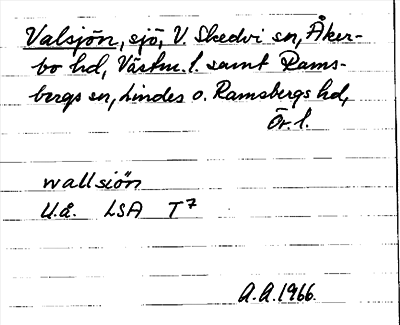 Valsjön, sjö, V. Skedvi sn, Åker-
bo hd, Västm. l. samt Rams-
bergs sn, Lindes o. Ramsbergs hd,
Ör. l.
wallsiön
U.å. LSA T7
A.A. 1966.